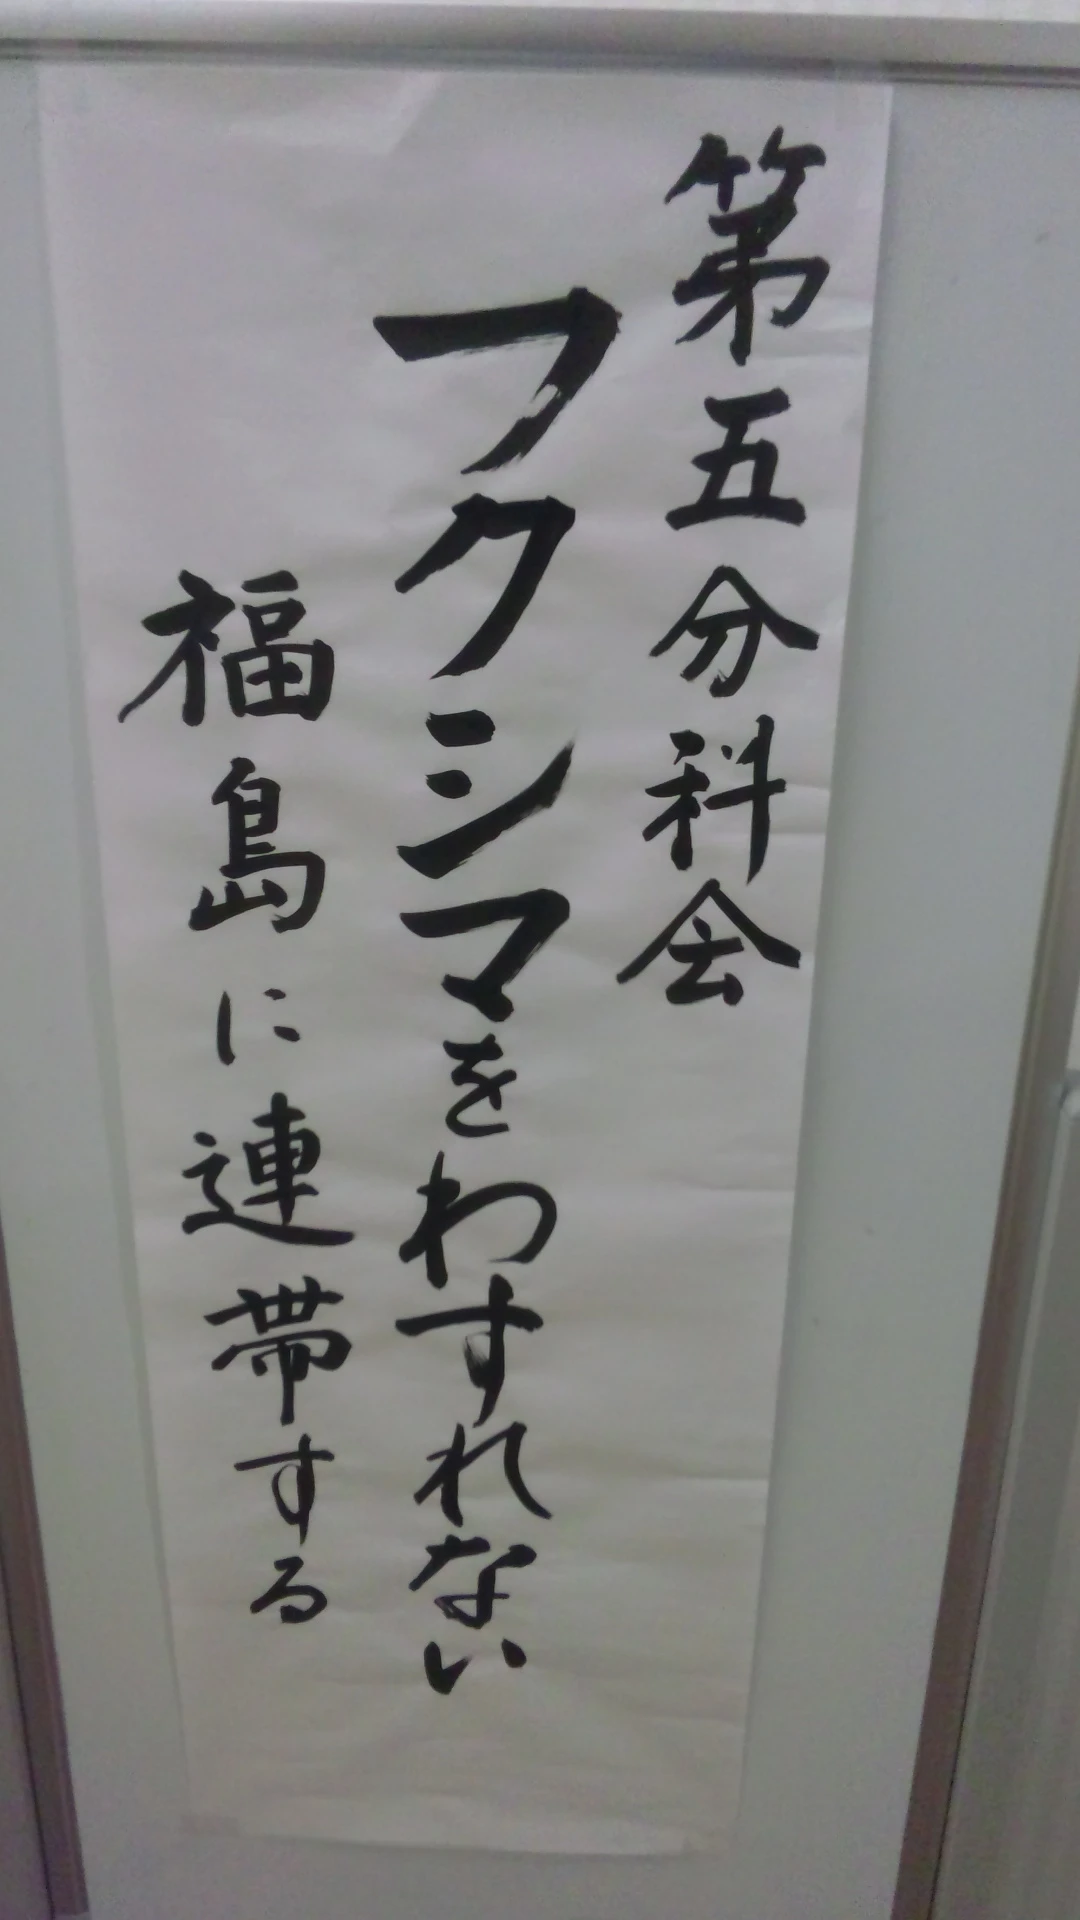 第五分科会
フクシマをわすれない
福島に連帯する